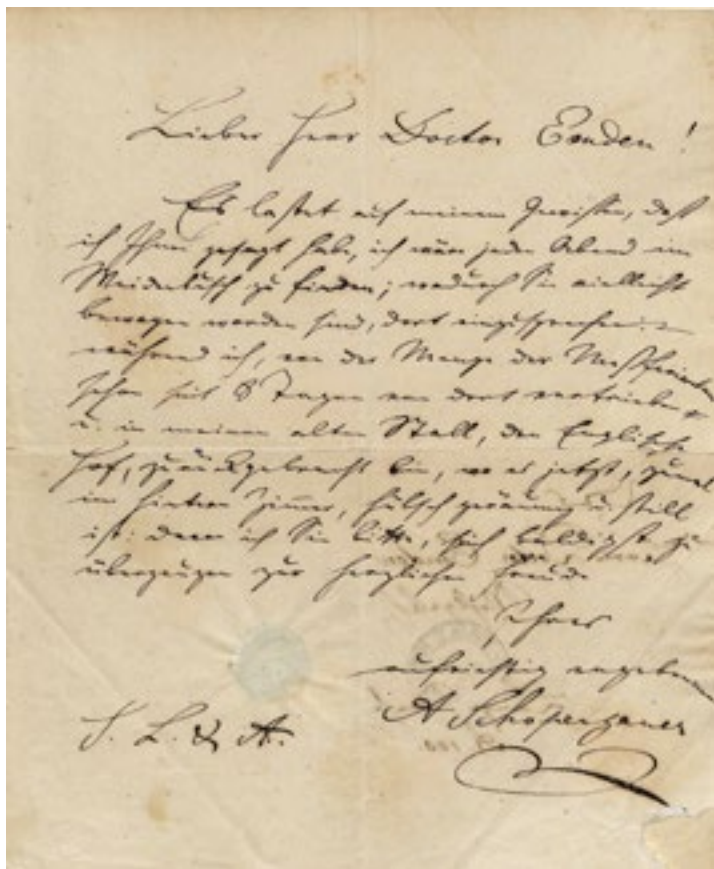 Lieber Herr Doctor Emden!
Es lastet auf meinem Gewissen, daß
ich Ihnen gesagt habe, ich wäre jeden Abend im
Weidenbusch zu finden; wodurch Sie vielleicht
bewogen worden sind, dort einzusprechen; –
während ich, von der Menge der Meßfremden
schon seit 8 Tagen von dort vertrieben
u. in meinen alten Stall, den Englischen
Hof, zurückgebracht bin, wo es jetzt, zumal
im hintern Zimmer, hübsch geräumig u. still
ist: davon ich Sie bitte, sich baldigst zu
überzeugen zur herzlichen Freude
Ihres
aufrichtig ergebenen
A Schopenhauer